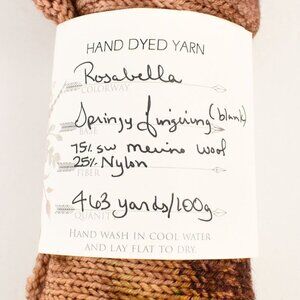 HAND DYED YARN
Rosabella
COLORWAY
Springy fingering (blank)
BASE
75% sw merino wool
25% Nylon
FIBER
463 yards/100g
QUANTITY
HAND WASH IN COOL WATER
AND LAY FLAT TO DRY.